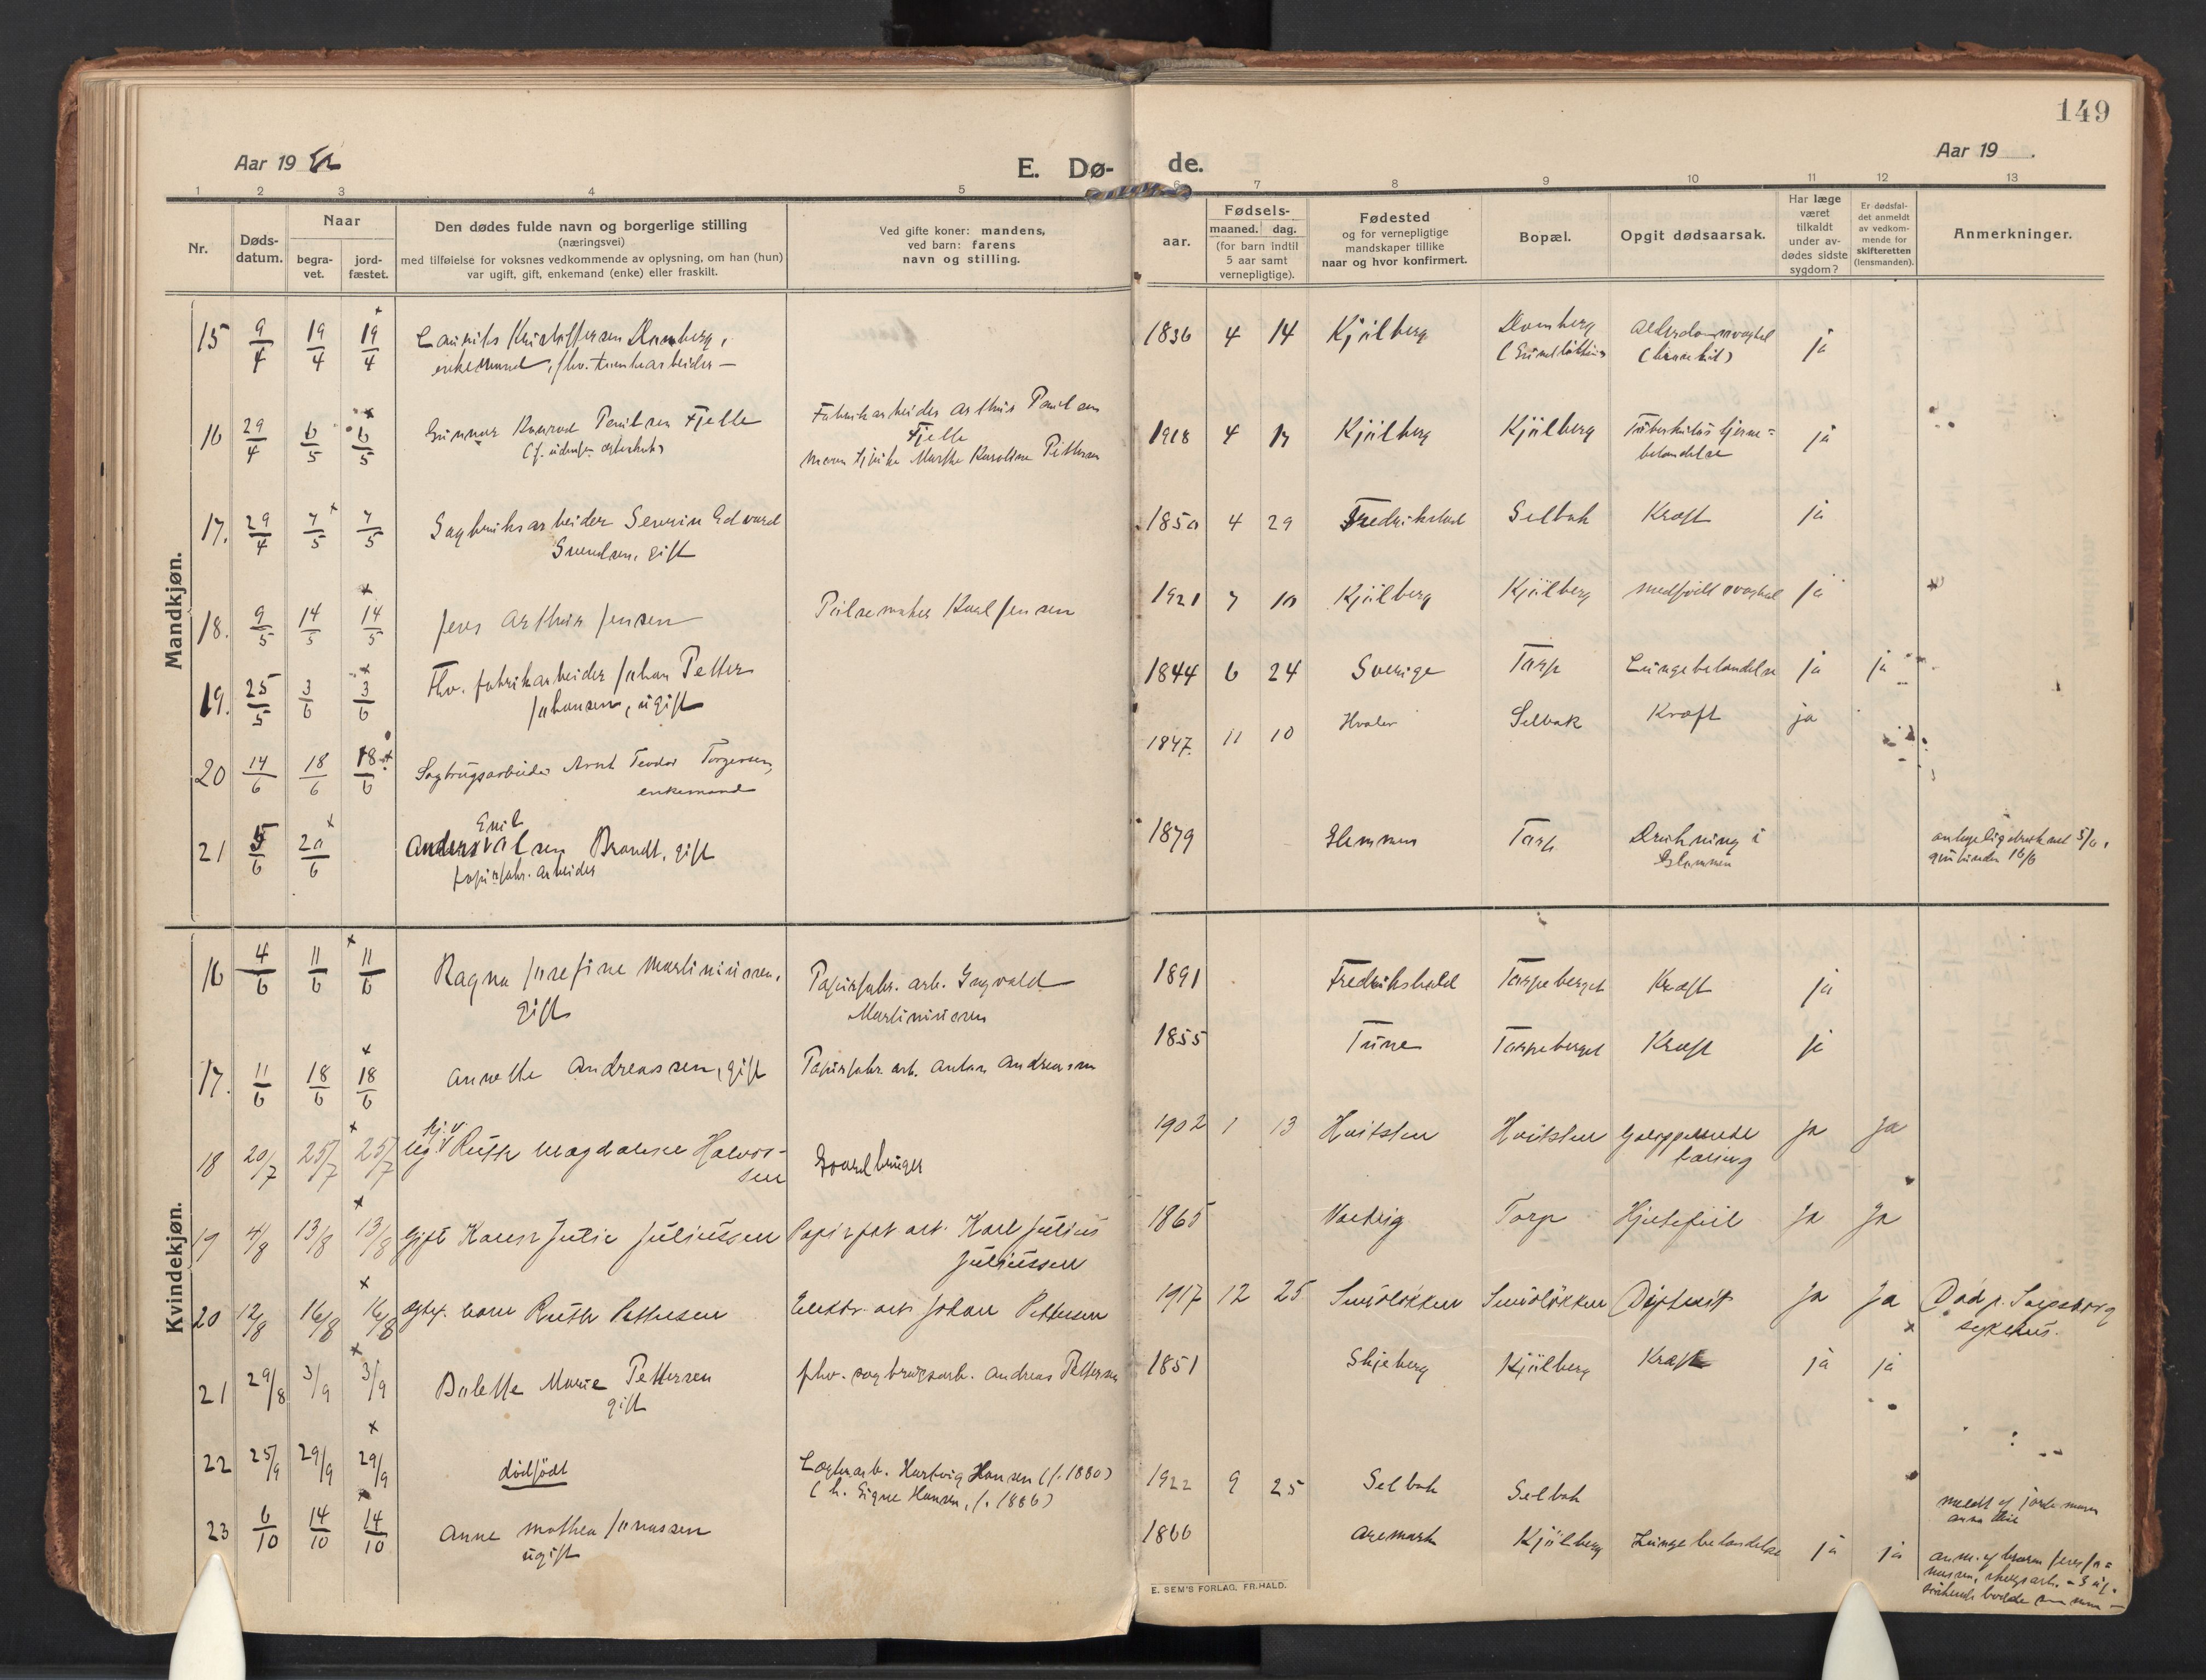 149
Aar 19 22
E. Dø-
de.
Aar 19 .
1 2 3 4 5 6 7 8 9 10 11 12 13
Nr.
Døds-
datum.
Naar
begra-
vet.
jord-
fæstet.
Den dødes fulde navn og borgerlige stilling
(næringsvei)
med tilføielse for voksnes vedkommende av oplysning, om han (hun)
var ugift, gift, enkemand (enke) eller fraskilt.
Ved gifte koner: mandens,
ved barn: farens
navn og stilling.
Fødsels-
aar.
maaned. dag.
(for barn indtil
5 aar samt
vernepligtige).
Fødested
og for vernepligtige
mandskaper tillike
naar og hvor konfirmert.
Bopæl.
Opgit dødsaarsak.
Har læge
været
tilkaldt
under av-
dødes sidste
sygdom?
Er dødsfal-
det anmeldt
av vedkom-
mende for
skifteretten
(lensmanden).
Anmerkninger.
Mandkjøn.
15 9/4 19/4 19/4 Kristoffersen 1836 4 14 Kjölberg ja
enkemand, fhv.
16 29/4 6/5 6/5 Gunnar Konrad Paulsen Fjelle Fabrikarbeider Arthur Paulsen 1918 4 17 Kjölberg Kjölberg Tuberkuløs hjerne= ja
Fjelle
Marthe Karoline Pettersen betændelse
17. 29/4 7/5 7/5 Sagbruksarbeider Severin Edvard 1850 4 29 Fredrikstad Selbak Kræft ja
Svendsen, gift
18. 9/5 14/5 14/5 Jens Arthur Jensen Pölsemaker Karl Jensen 1921 7 10 Kjölberg Kjölberg medfödt svaghet ja
19. 25/5 3/6 3/6 Fhv. fabrikarbeider Johan Petter 1844 6 24 Sverige Torp Lungebetændelse ja ja
Johansen, ugift
20 14/6 18/6 18/6 Sagbrugsarbeider Arnt Teodor Torgersen, 1847. 11 10 Hvaler Selbak Kræft ja
enkemand
21 5/6 20/6 Anders Emil Olsen Brandt, gift 1879 Glemmen Torp Drukning i antagelig druknet 5/6,
papirfabr. arbeider Glommen 16/6
Kvindekjøn.
16 4/6 11/6 11/6 Ragna Josefine Martiniussen, Papirfabr. arb. Ingvald 1891 Fredrikshald Torpeberget Kræft ja
gift Martiniussen
17. 11/6 18/6 18/6 Annette Andreassen, gift Papirfabr. arb. Anton Andreassen 1855 Tune Torpeberget Kræft ja
18 20/7 25/7 25/7 Ruth Magdalene Halvor- Gaardbruger 1902 1 13 Hvitsten Hvitsten Galopperende ja ja
sen tæring
19 4/8 13/8 13/8 Gift Karen Julie Juliussen Papirfab arb. Karl Julius 1865 Torp Hjertefeil Ja Ja
Juliussen
20 12/8 16/8 16/8 barn Ruth Pettersen Elektr. arb Johan Pettersen 1917 12 25 Difterit Ja Ja Död p. Sarpsborg
sykehus.
21 29/8 3/9 3/9 Dolette Marie Pettersen fhv. sagbruksarb. Andreas Pettersen 1851 Skjeberg Kjölberg Kræft ja ja
gift
22 25/9 29/9 29/9 dödfödt Hartvig Hansen (f. 1880) 1922 9 25 Selbak Selbak meldt af jordemoren
(h. Signe Hansen, f. 1886)
23 6/10 14/10 14/10 Anne Mathea Jonassen 1866 Aremark Kjölberg Lungebetændelse ja ja anm. af broren Jens Jo=
ugift nassen,
E. SEM'S FORLAG. FR.HALD.